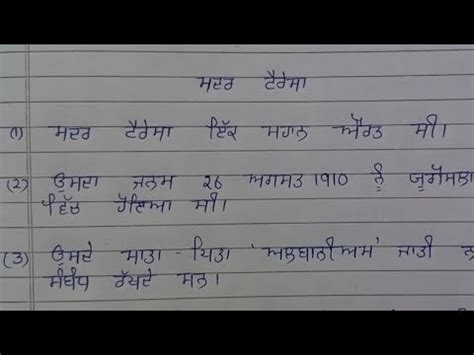 ਮਦਰ ਟੈਰੇਸਾ
(1) ਮਦਰ ਟੈਰੇਸਾ ਇੱਕ ਮਹਾਨ ਔਰਤ ਸੀ।
(2) ਉਸਦਾ ਜਨਮ 26 ਅਗਸਤ 1910 ਨੂੰ
ਵਿੱਚ ਹੋਇਆ ਸੀ।
(3) ਉਸਦੇ ਮਾਤਾ - ਪਿਤਾ 'ਅਲਬਾਨੀਅਮ' ਜਾਤੀ ਨ
ਸੰਬੰਧ ਰੱਖਦੇ ਸਨ।